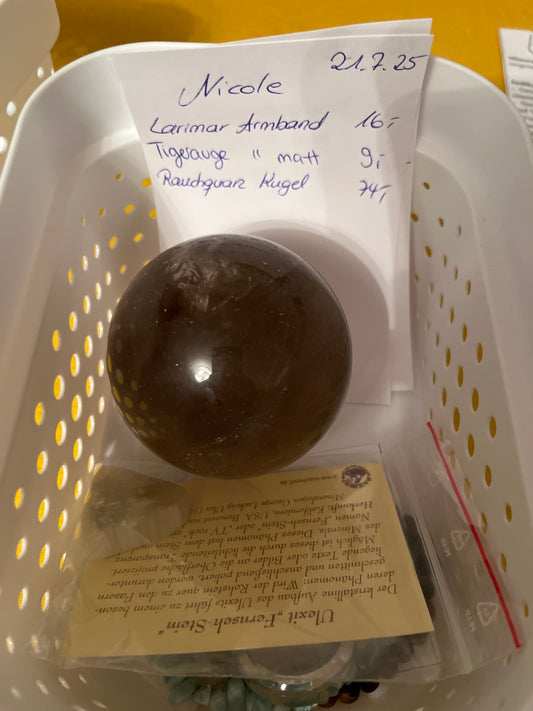 21.7.25
Nicole
Larimar Armband 16,-
Tigerauge " matt 9,-
Rauchquarz Kugel 74,-
Ulexit „Fernseh-Stein“
Der kristalline Aufbau des Ulexits führt zu einem beson-
deren Phänomen: Wird der Rohstein quer zu den Fasern
geschnitten und anschließend poliert, werden darunter-
liegende Texte oder Bilder an die Oberfläche projiziert
Möglich ist dieses durch die lichtleitende Transparenz
des Minerals. Dieses Phänomen hat dem Stein auch
Namen „Fernseh-Stein“ oder „TV-rock“
Herkunft: Kalifornien, USA. Benannt nach
Mineralogen George Ludwig Ulex